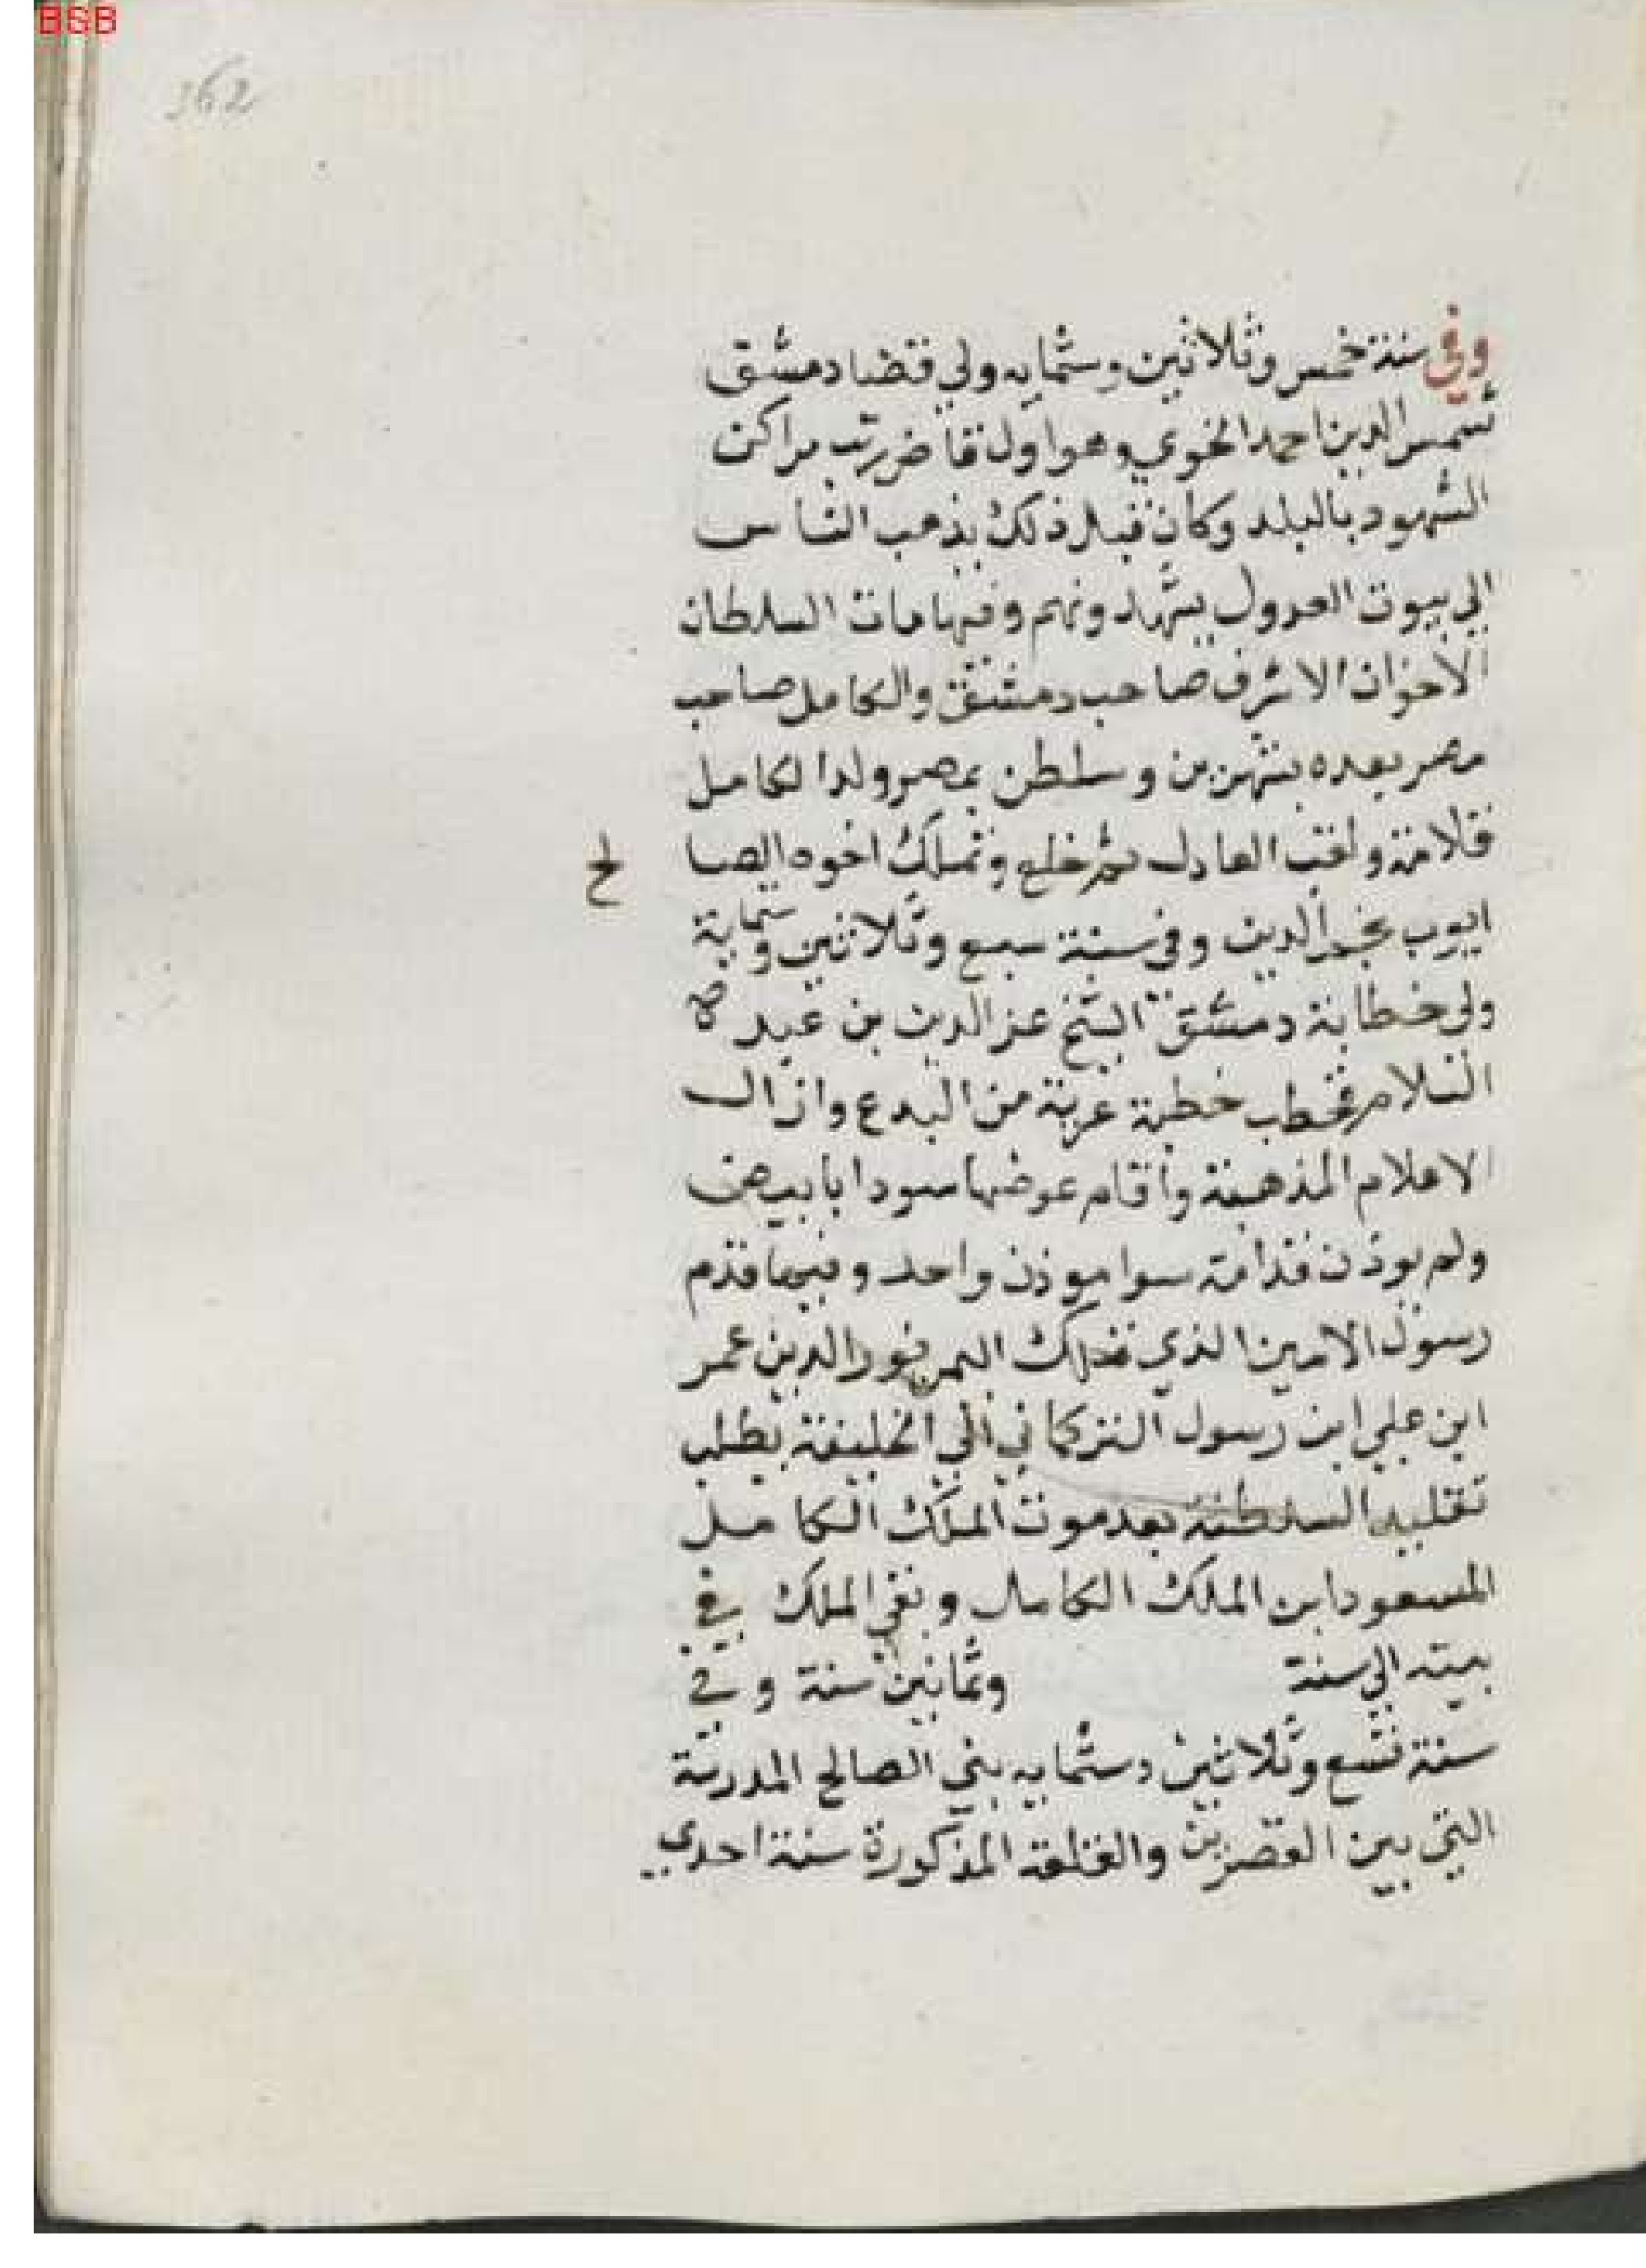 BSB
362
وفي سنة خمس وثلاثين وستمايه ولي قضا دمشق
شمس الدين احمد الخوي وهو اول قاض رتب مراكز
الشهود بالبلد وكان قبل ذلك يذهب الناس
الي بيوت العدول يشهدونهم وفيها مات السلطان
الاخوان الاشرف صاحب دمشق والكامل صاحب
مصر بعده بشهرين وسلطن بمصر ولد الكامل
قلامته ولقب العادل ثم خلع وتملك اخوه الصا لح
ايوب نجم الدين وفي سنة سبع وثلاثين وستماية
ولي خطابة دمشق الشيخ عز الدين بن عبد
السلام فخطب خطبة عرية من البدع وازال
الاعلام المذهبة واقام عوضها سودا بابيض
ولم يوذن قدامه سوا موذن واحد وفيها قدم
رسول الامين الذي تملك اليمن نور الدين عمر
ابن علي ابن رسول التركماني الي الخليفة يطلب
تقليد السلطنة بعد موت الملك الكامل
المسعود ابن الملك الكامل وبقي الملك في
بيته الي سنة وثمانين سنة وفي
سنة تسع وثلاثين وستمايه بني الصالح المدرسة
التي بين القصرين والقلعة المذكورة سنة احدي